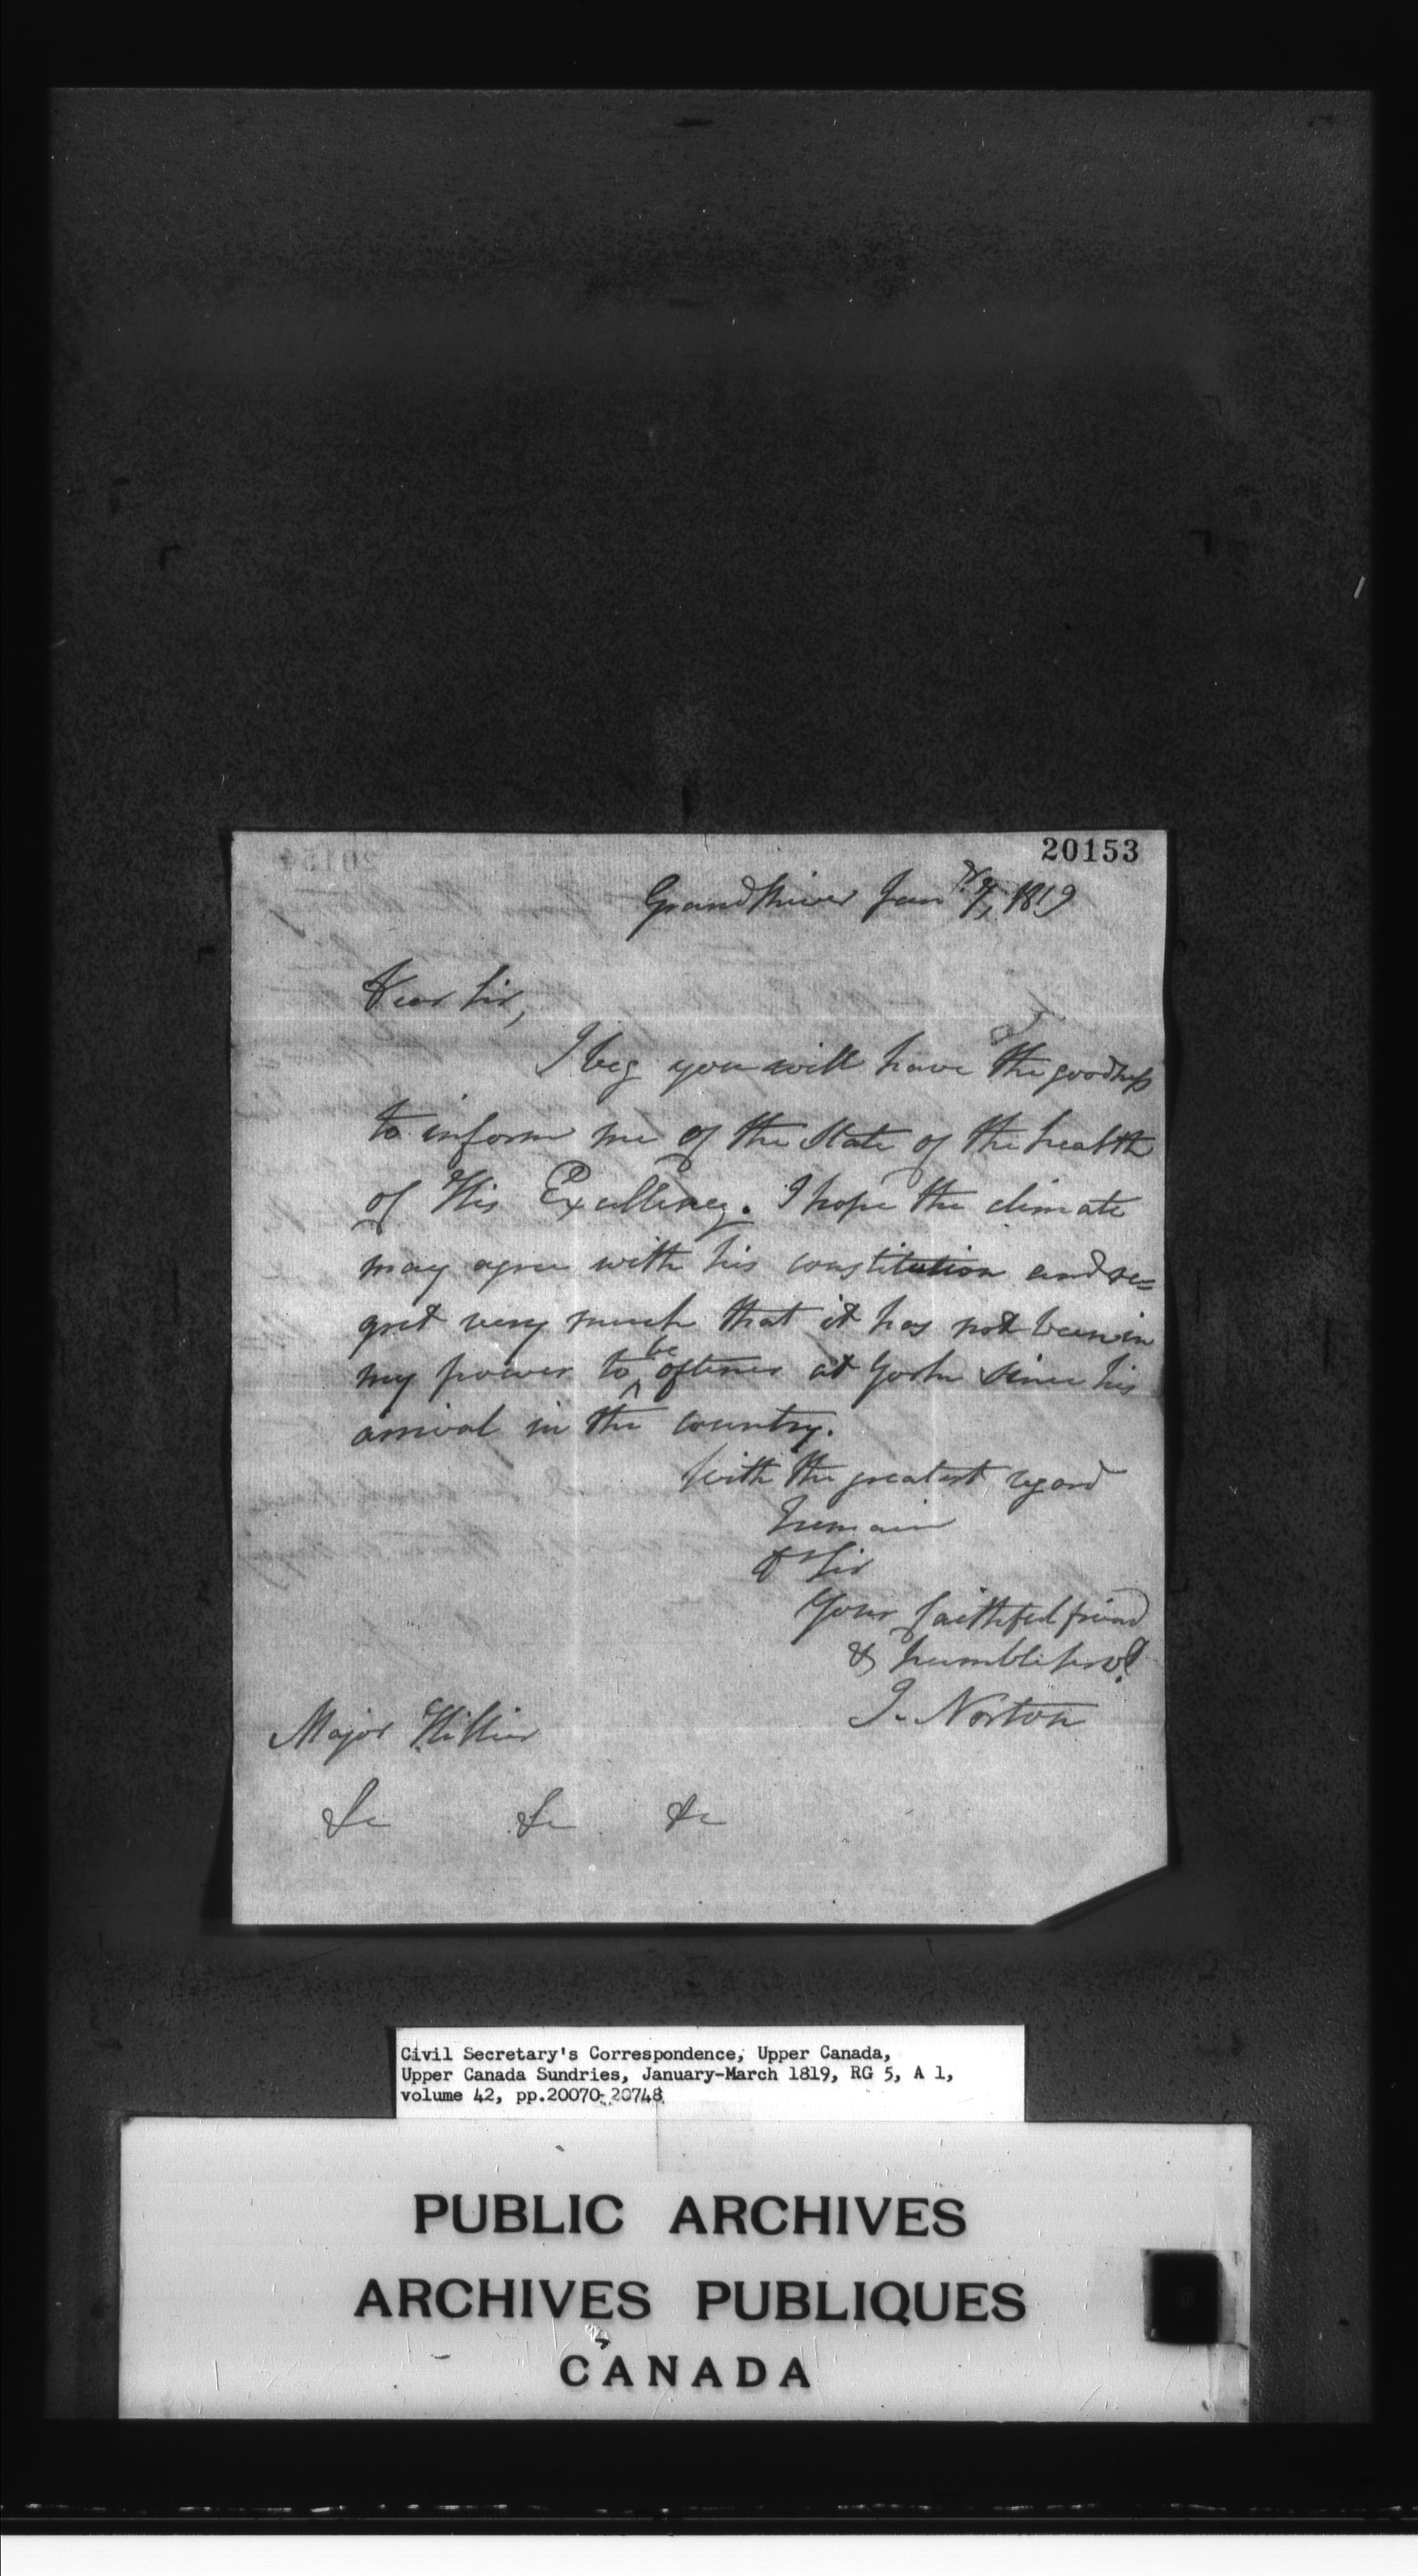 20153
Grand River Jany 7, 1819
Dear Sir,
I beg you will have the goodness
to inform me of the State of the health
of His Excellency. I hope the climate
may agree with his constitution and re=
gret very much that it has not been in
my power to be oftener at York since his
arrival in the country.
With the greatest regard
I remain
D Sir
Your faithful friend
& humble servt
J. Norton
Major Hillier
&c &c &c
Civil Secretary's Correspondence, Upper Canada,
Upper Canada Sundries, January-March 1819, RG 5, A 1,
volume 42, pp.20070-20748
PUBLIC ARCHIVES
ARCHIVES PUBLIQUES
CANADA